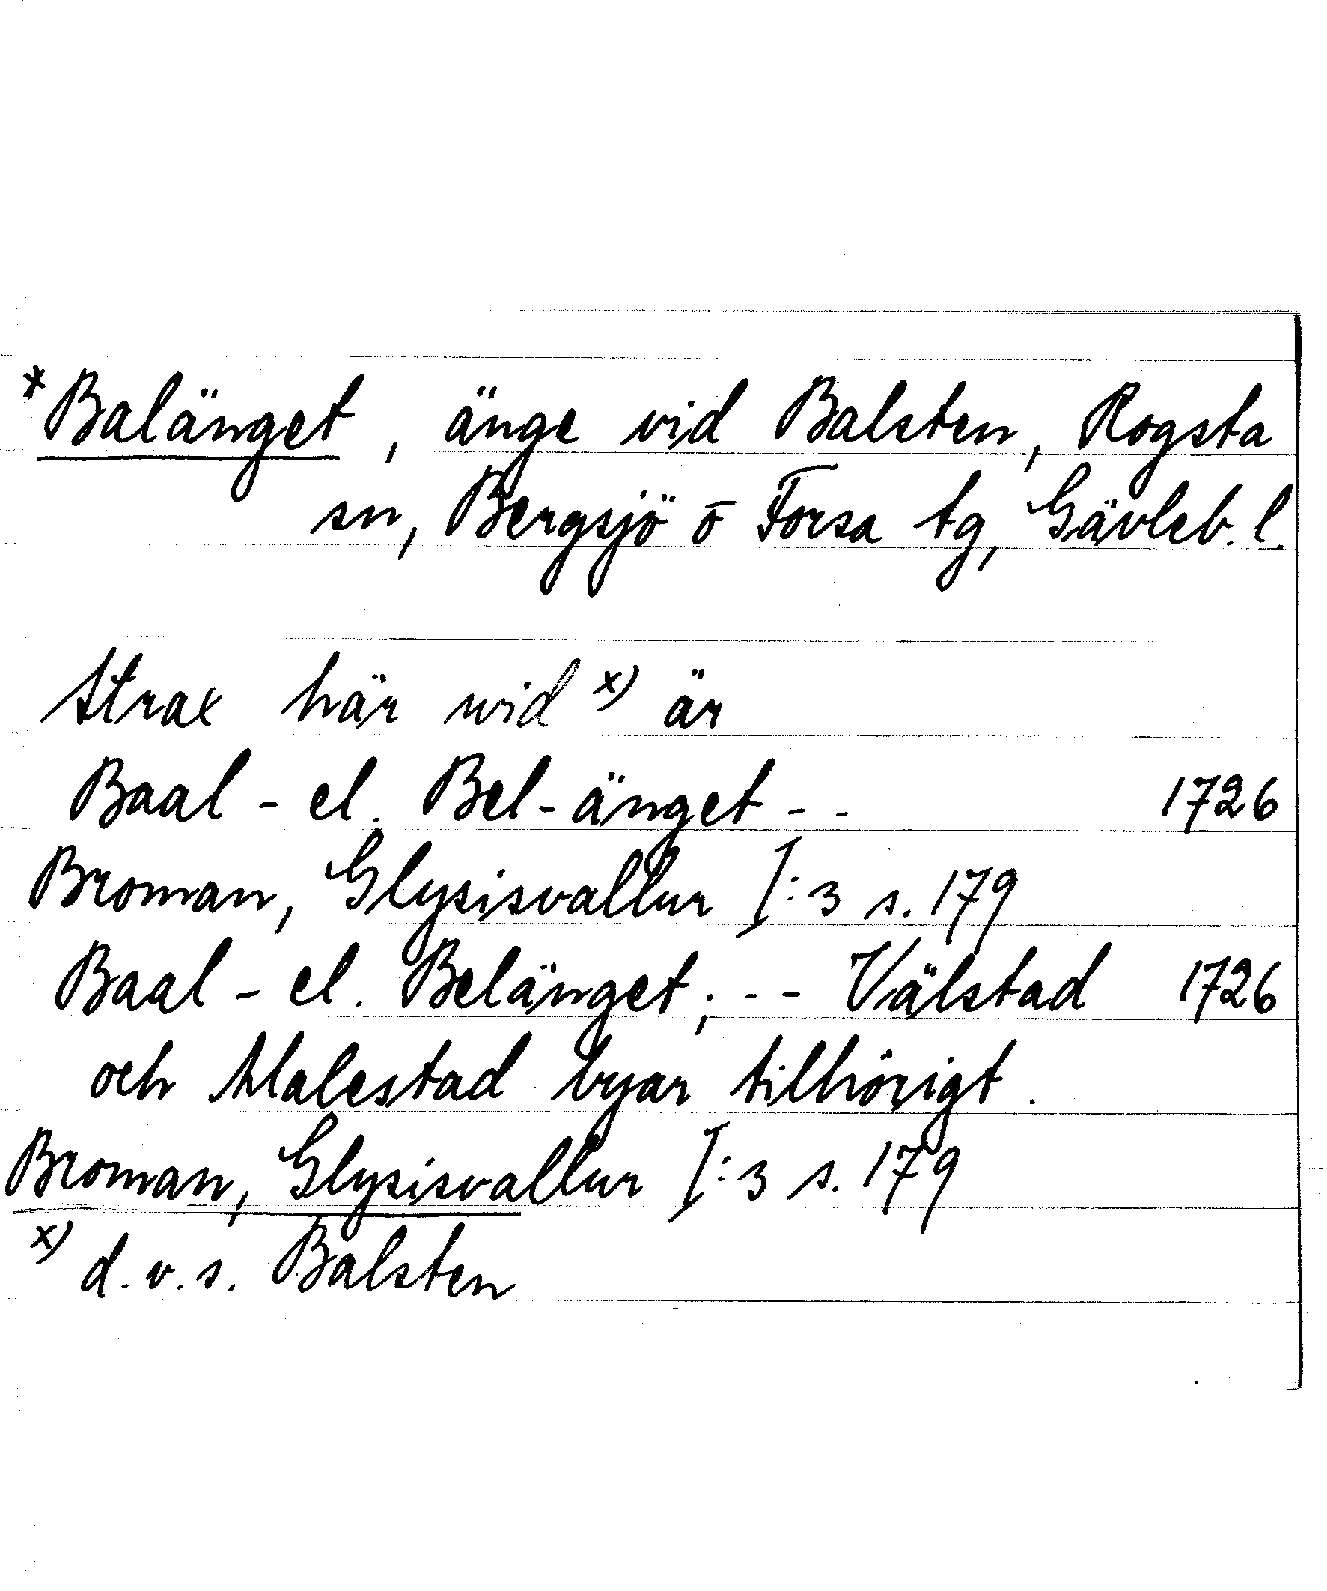 *Balänget, änge vid Balsten, Rogsta
sn, Bergsjö o Forsa tg, Gävleb. l.
Strax här wid x) är
Baal- el. Bel-änget - - 1726
Broman, Glysisvallur I:3 s. 179
Baal- el. Belänget; - - Välstad 1726
och Malestad byar tilhörigt.
Broman, Glysisvallur I:3 s. 179
x) d.v.s. Balsten